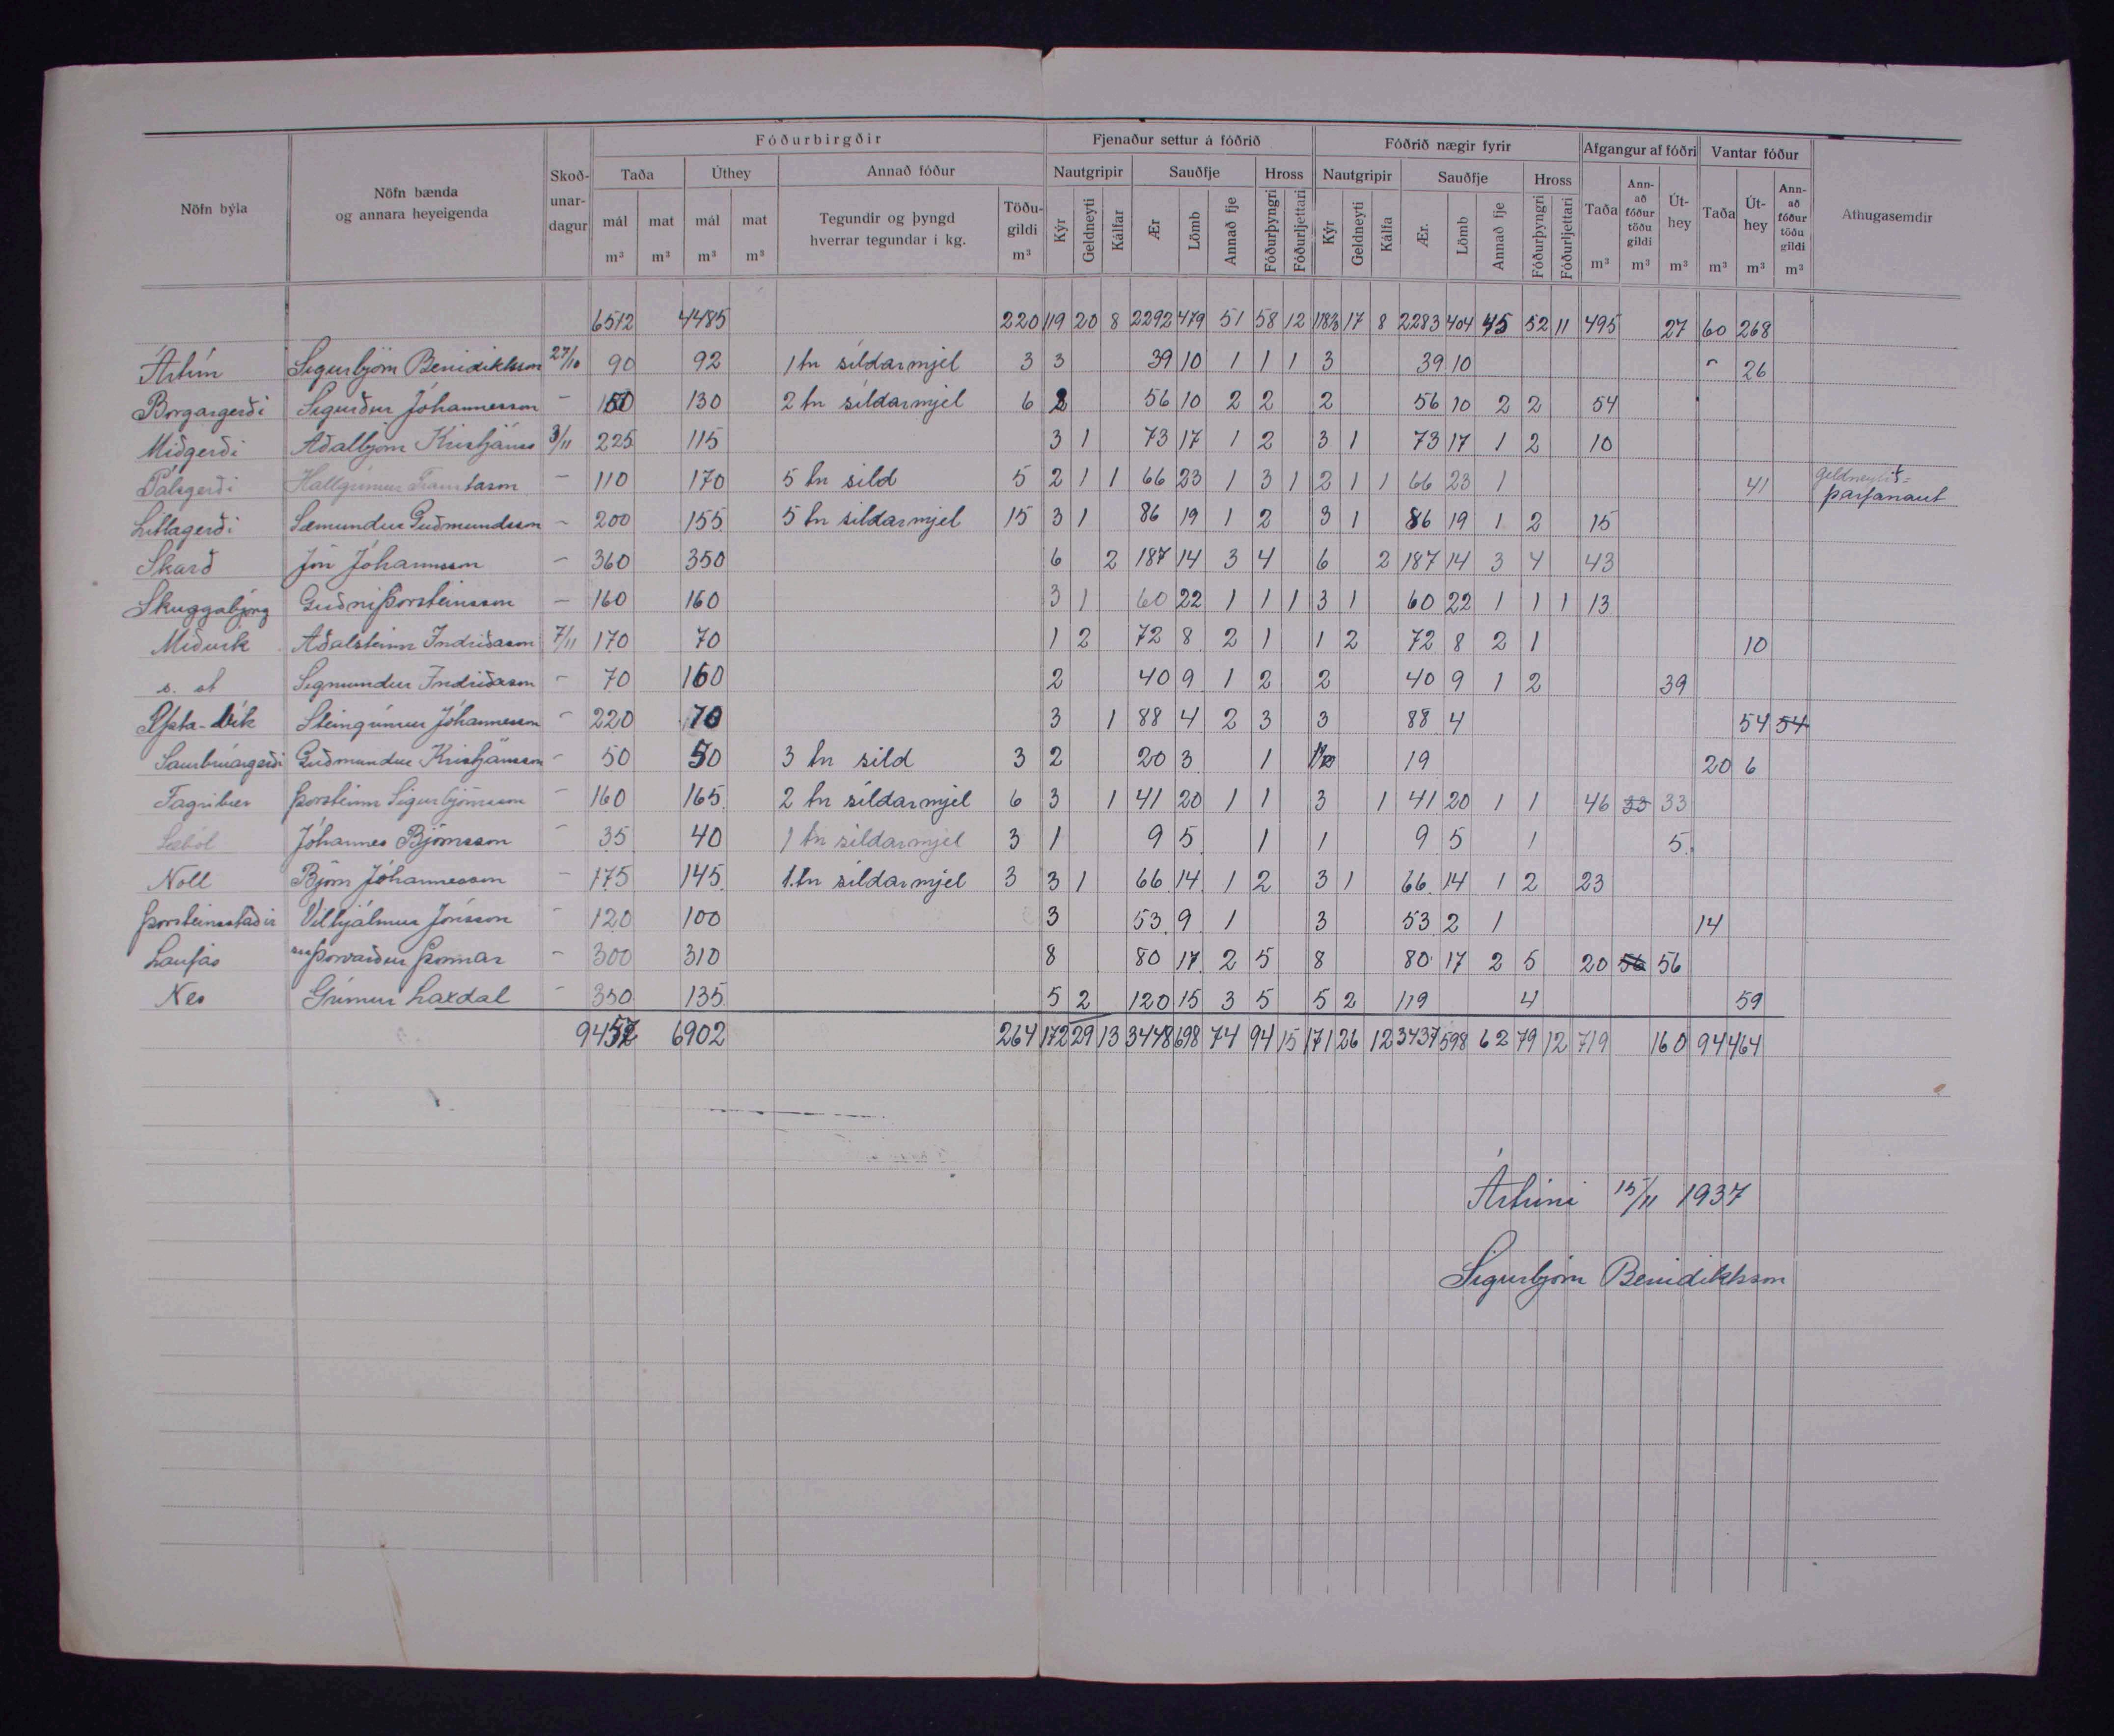 Fóðurbirgðir Fjenaður settur á fóðrið Fóðrið nægir fyrir Afgangur af fóðri Vantar fóður
Nöfn býla Nöfn bænda og annara heyeigenda Skoð-unar-dagur Taða Úthey Annað fóður Nautgripir Sauðfje Hross Nautgripir Sauðfje Hross Taða Ann-að fóður töðu gildi Út-hey Taða Út-hey Ann-að fóður töðu gildi Athugasemdir
mál m³ mat m³ mál m³ mat m³ Tegundir og þyngd hverrar tegundar í kg. Töðu-gildi m³ Kýr Geldneyti Kálfar Ær Lömb Annað fje Fóðurþyngri Fóðurljettari Kýr Geldneyti Kálfa Ær. Lömb Annað fje Fóðurþyngri Fóðurljettari m³ m³ m³ m³ m³ m³
6512 4485 220 119 20 8 2292 479 51 58 12 118⅔ 17 8 2283 404 45 52 11 495 27 60 268
Ártún Sigurbjörn Benidiktsson 27/10 90 92 1 tn síldarmjel 3 3 39 10 1 1 1 3 39 10 26
Borgargerði Sigurður Jóhannesson – 150 130 2 tn síldarmjel 6 2 56 10 2 2 2 56 10 2 2 54
Miðgerði Aðalbjörn Kristjáns 3/11 225 115 3 1 73 17 1 2 3 1 73 17 1 2 10
Pálsgerði Hallgrímur Traustason – 110 170 5 tn síld 5 2 1 1 66 23 1 3 1 2 1 1 66 23 1 41 Geldneytið = þarfanaut
Litlagerði Sæmundur Guðmundsson – 200 155 5 tn síldarmjel 15 3 1 86 19 1 2 3 1 86 19 1 2 15
Skarð Jón Jóhannsson – 360 350 6 2 187 14 3 4 6 2 187 14 3 4 43
Skuggabjörg Guðni Þorsteinsson – 160 160 3 1 60 22 1 1 1 3 1 60 22 1 1 1 13
Miðvík Aðalsteinn Indriðason 7/11 170 70 1 2 72 8 2 1 1 2 72 8 2 1 10
s. st Sigmundur Indriðason – 70 160 2 40 9 1 2 2 40 9 1 2 39
Ysta-Vík Steingrímur Jóhannesson – 220 70 3 1 88 4 2 3 3 88 4 54 54
Saurbrúargerði Guðmundur Kristjánsson – 50 50 3 tn síld 3 2 20 3 1 19 20 6
Fagribær Þorsteinn Sigurbjörnsson – 160 165 2 tn síldarmjel 6 3 1 41 20 1 1 3 1 41 20 1 1 46 33 33
Sæból Jóhannes Björnsson – 35 40 1 tn síldarmjel 3 1 9 5 1 1 9 5 1 5
Noll Björn Jóhannesson – 175 145 1 tn síldarmjel 3 3 1 66 14 1 2 3 1 66 14 1 2 23
Þorsteinsstaðir Vilhjálmur Jónsson – 120 100 3 53 9 1 3 53 2 1 14
Laufás Þorvarður Þormar – 300 310 8 80 17 2 5 8 80 17 2 5 20 56 56
Nes Grímur Laxdal – 350 135 5 2 120 15 3 5 5 2 119 4 59
9457 6902 264 172 29 13 3448 698 74 94 15 171 26 12 3437 598 62 79 12 719 160 94 464
Ártúni 15/11 1937
Sigurbjörn Benidiktsson